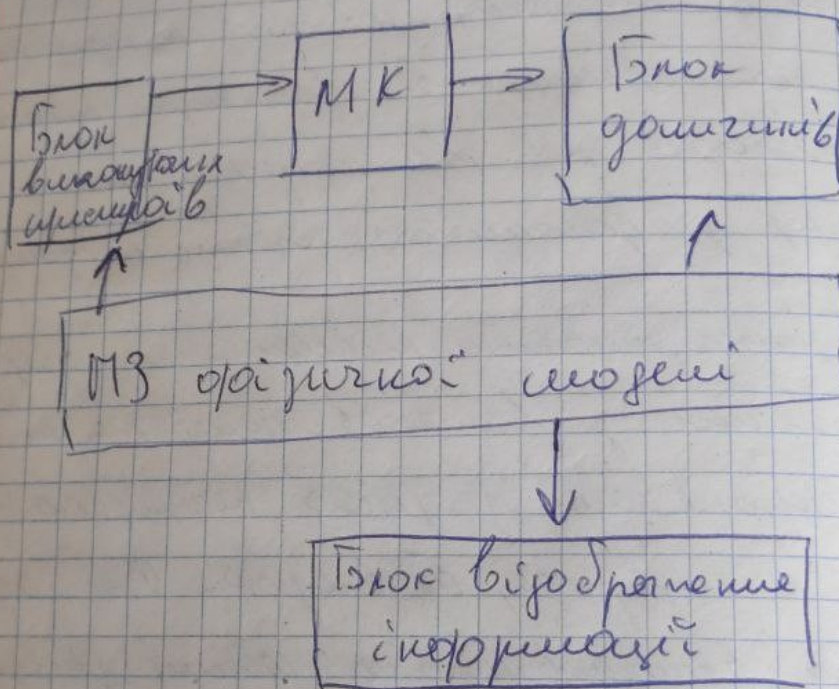 Блок
виконуючих
пристроїв
МК
Блок
датчиків
ПЗ фізичної моделі
Блок візображення
інформації